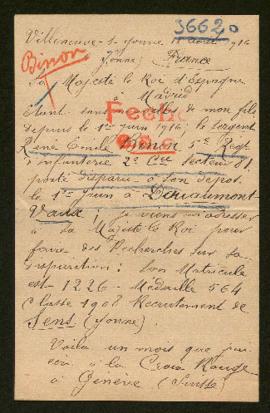 36620
Villeneuve-s-Yonne 11 août 1916
Yonne) France
Benon
Sa Majesté le Roi d'Espagne
à Madrid
Etant sans nouvelles de mon fils
depuis le 1er Juin 1916; le sergent
René Emile Benon 5me Regt
d'infanterie 2e Cie secteur 81,
porté disparu à son dépot
le 1er Juin à Douaumont-
Vaux; je viens m'adresser
à Sa Majesté le Roi pour
faire des Recherches sur sa
disparution: son Matricule
est 1226 - Médaille 564
Classe 1908 Recrutement de
Sens (Yonne)
Voila un mois que j'ai
écrit à la Croix Rouge
à Genève (Suisse)